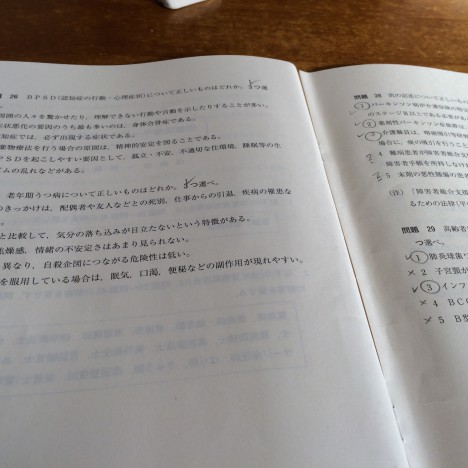 26 BPSD(認知症の行動・心理症状)について正しいものはどれか。3つ選
周囲の人々を驚かせたり、理解できない行動や言動を示したりすることが多い。
症状悪化の要因のうち最も多いのは、身体合併症である。
認知症では、必ず出現する症状である。
薬物療法を行う場合の原則は、精神的安定を図ることである。
PSDを起こしやすい要因として、孤立・不安、不適切な住環境、睡眠等の生
ズムの乱れなどがある。
老年期うつ病について正しいものはどれか。3つ選べ。
のきっかけは、配偶者や友人などとの死別、仕事からの引退、疾病の罹患な
がある。
と比較して、気分の落ち込みが目立たないという特徴がある。
焦燥感、情緒の不安定さはあまり見られない。
異なり、自殺企図につながる危険性は低い。
を服用している場合は、眠気、口渇、便秘などの副作用が現れやすい。
問題 28 次の記述について正しい
1 パーキンソン病が介護保険の
のステージ以上である必要があ
2
3 介護職員は、
場合に、痰の吸引を行うことが
4 難病患者が障害者総合支
障害者手帳を所持しなけ
5 末期の悪性腫瘍の患者
(注) 「障害者総合支援
るための法律(平
問題 29 高齢者
つ選べ。
1 肺炎球菌ワ
2 子宮頸
3 インフ
4 BCG
5 B型